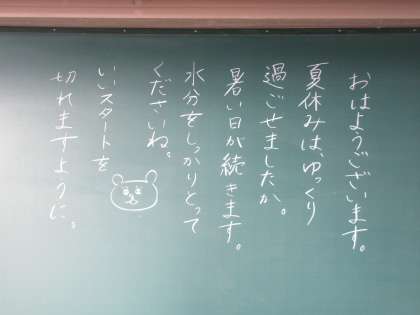 おはようございます。
夏休みは、ゆっくり
過ごせましたか。
暑い日が続きます。
水分をしっかりとって
くださいね。
いいスタートを
切れますように。